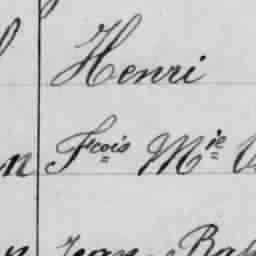 Henri
n Fcois Mie V
Jean Bap